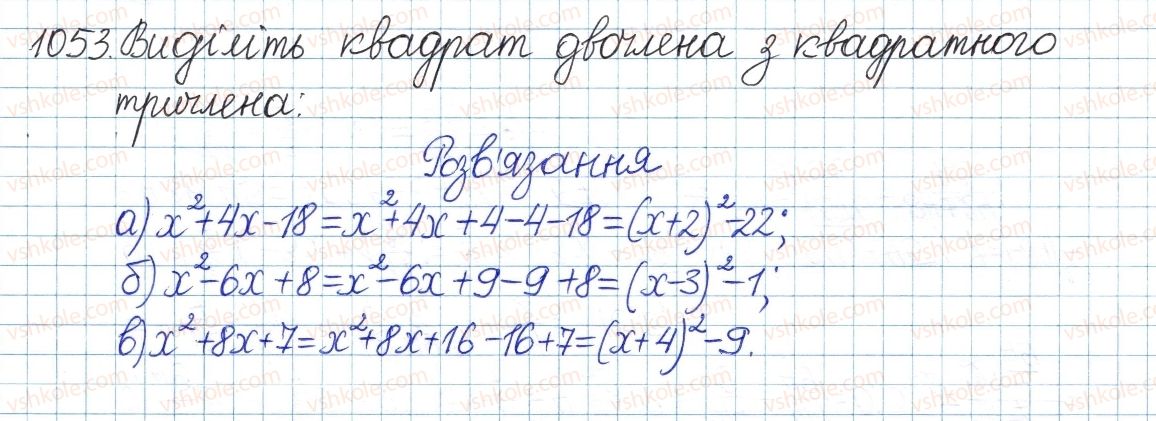 1053. Виділіть квадрат двочлена з квадратного
тричлена:
Розв'язання
а) x²+4x-18=x²+4x+4-4-18=(x+2)²-22;
б) x²-6x+8=x²-6x+9-9+8=(x-3)²-1;
в) x²+8x+7=x²+8x+16-16+7=(x+4)²-9.